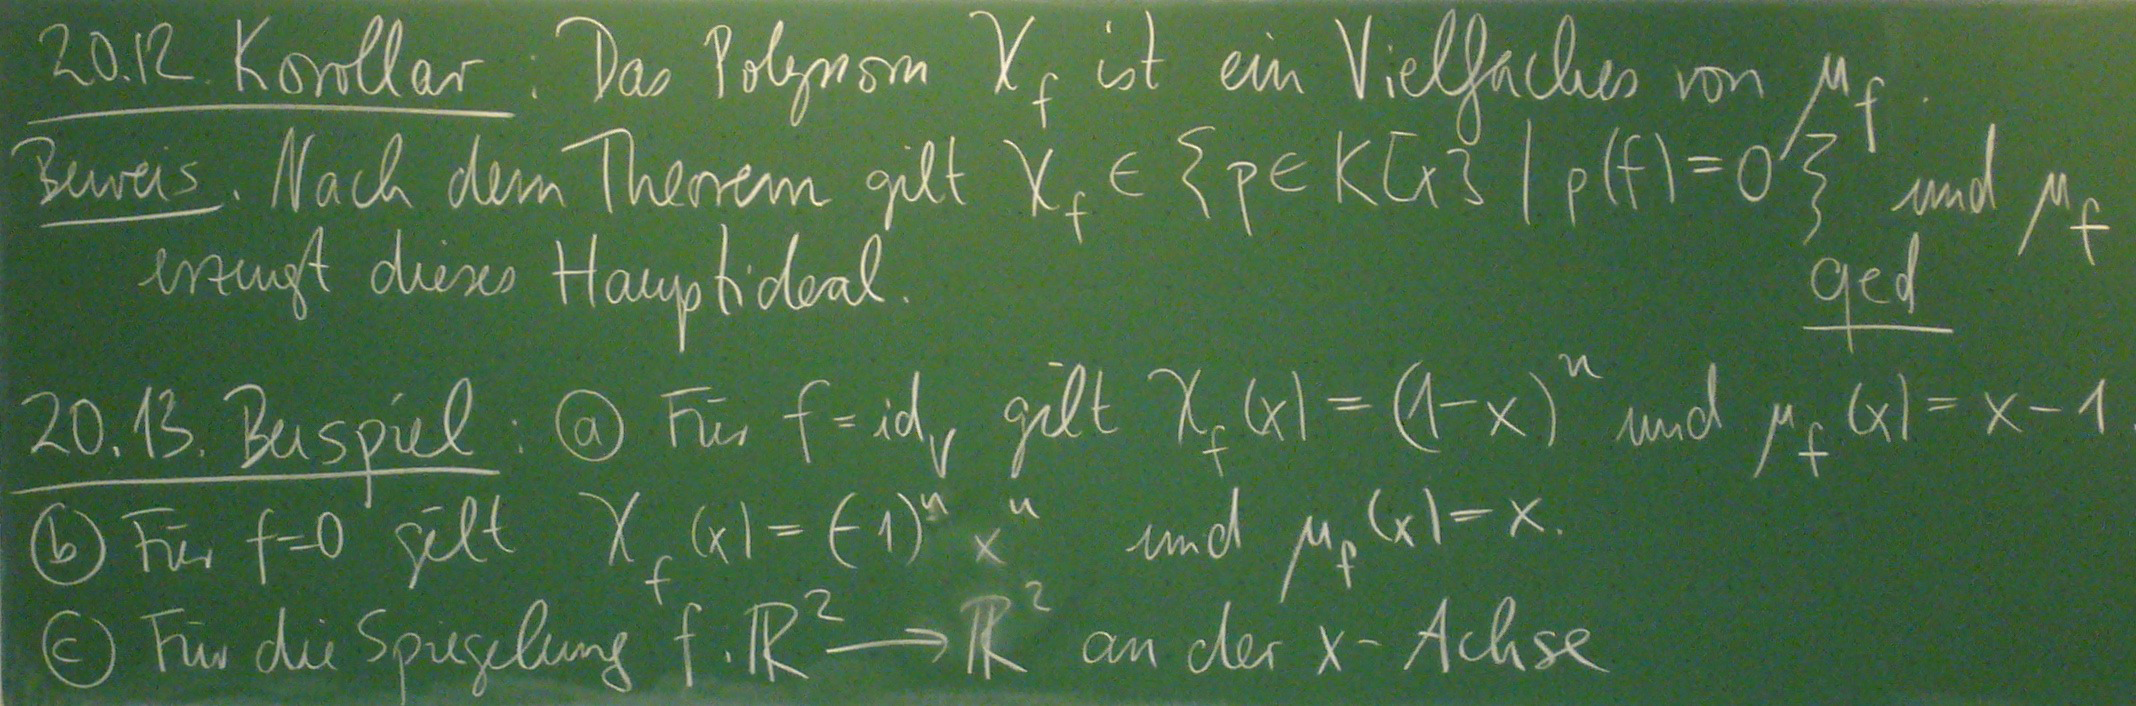 20.12. Korollar : Das Polynom χ_f ist ein Vielfaches von μ_f.
Beweis. Nach dem Theorem gilt χ_f ∈ {p ∈ K[x] | p(f) = 0} und μ_f
erzeugt dieses Hauptideal.
qed
20.13. Beispiel : ⓐ Für f = id_V gilt χ_f(x) = (1-x)^n und μ_f(x) = x-1.
ⓑ Für f=0 gilt χ_f(x) = (-1)^n x^n und μ_f(x) = x.
ⓒ Für die Spiegelung f : ℝ² → ℝ² an der x-Achse